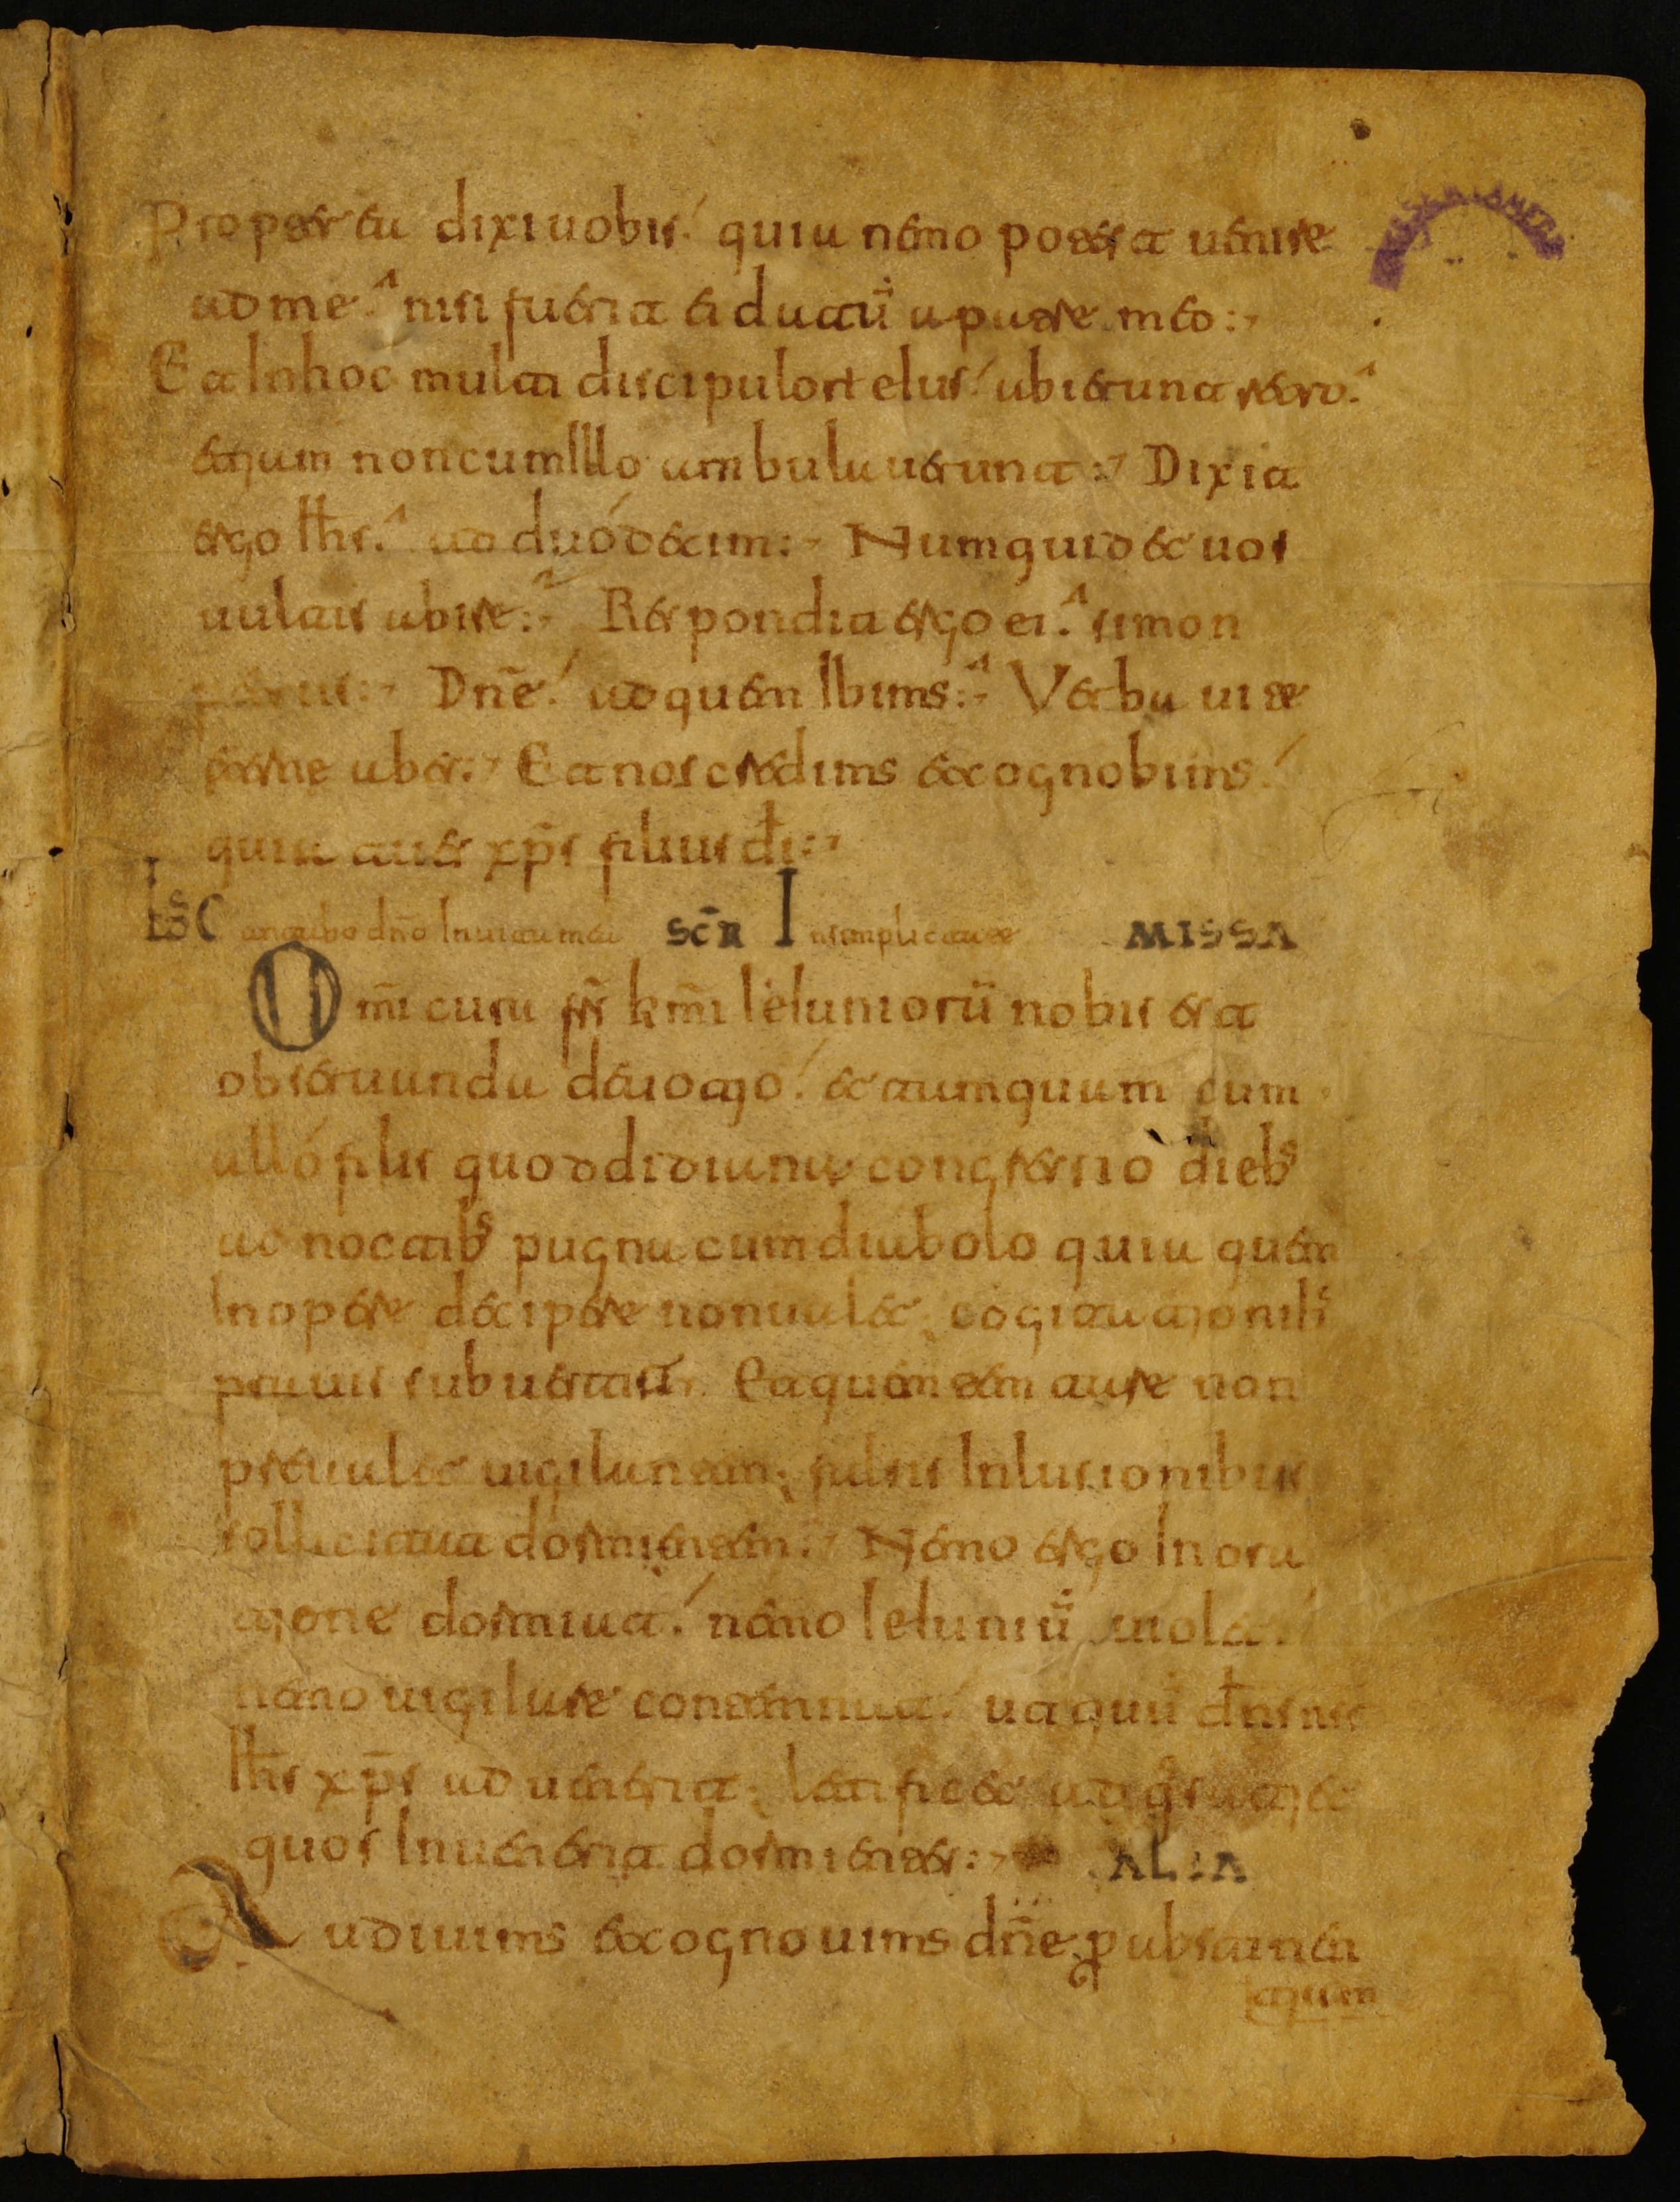 Propterea dixi uobis quia nemo potest uenire
ad me nisi fuerit ei datū a patre meo :
Et In hoc multi discipulor eIus abierunt retro
etiam non cum Illo ambulauerunt : Dixit
ergo Ihs ad duodecim : Numquid et uos
uultis abire : Respondit ergo ei simon
petrus : Dnē ad quem Ibims : Verba uite
eterne abes : Et nos credims et cognobims
quia tu es xp̄s filius di :
LSC antabo dn̄o In uita mea SCR In simplicitate MISSA
Om̄i cura frs km̄i IeIuniorū nobis est
obseruanda deuotio et tamquam cum
allófilis quod didiana congressio diebs
ad noctibs pugna cum diabolo quia quem
In opere decipere non ualet ; cogitationibs
prauis subuertitur. Et quem temtare non
preualet uigilantem ; falsis Inlusionibus
sollicitat dormientem : Nemo ergo In ora
tione dormiat nemo IeIuniū uiolet
nemo uigilare contemnat ut quū dns nsr
Ihs xp̄s aduenerit ; letificet
quos Inuenerit dormientes : ALIA
Audiuims et cognouims dn̄e p abstinen
tiam